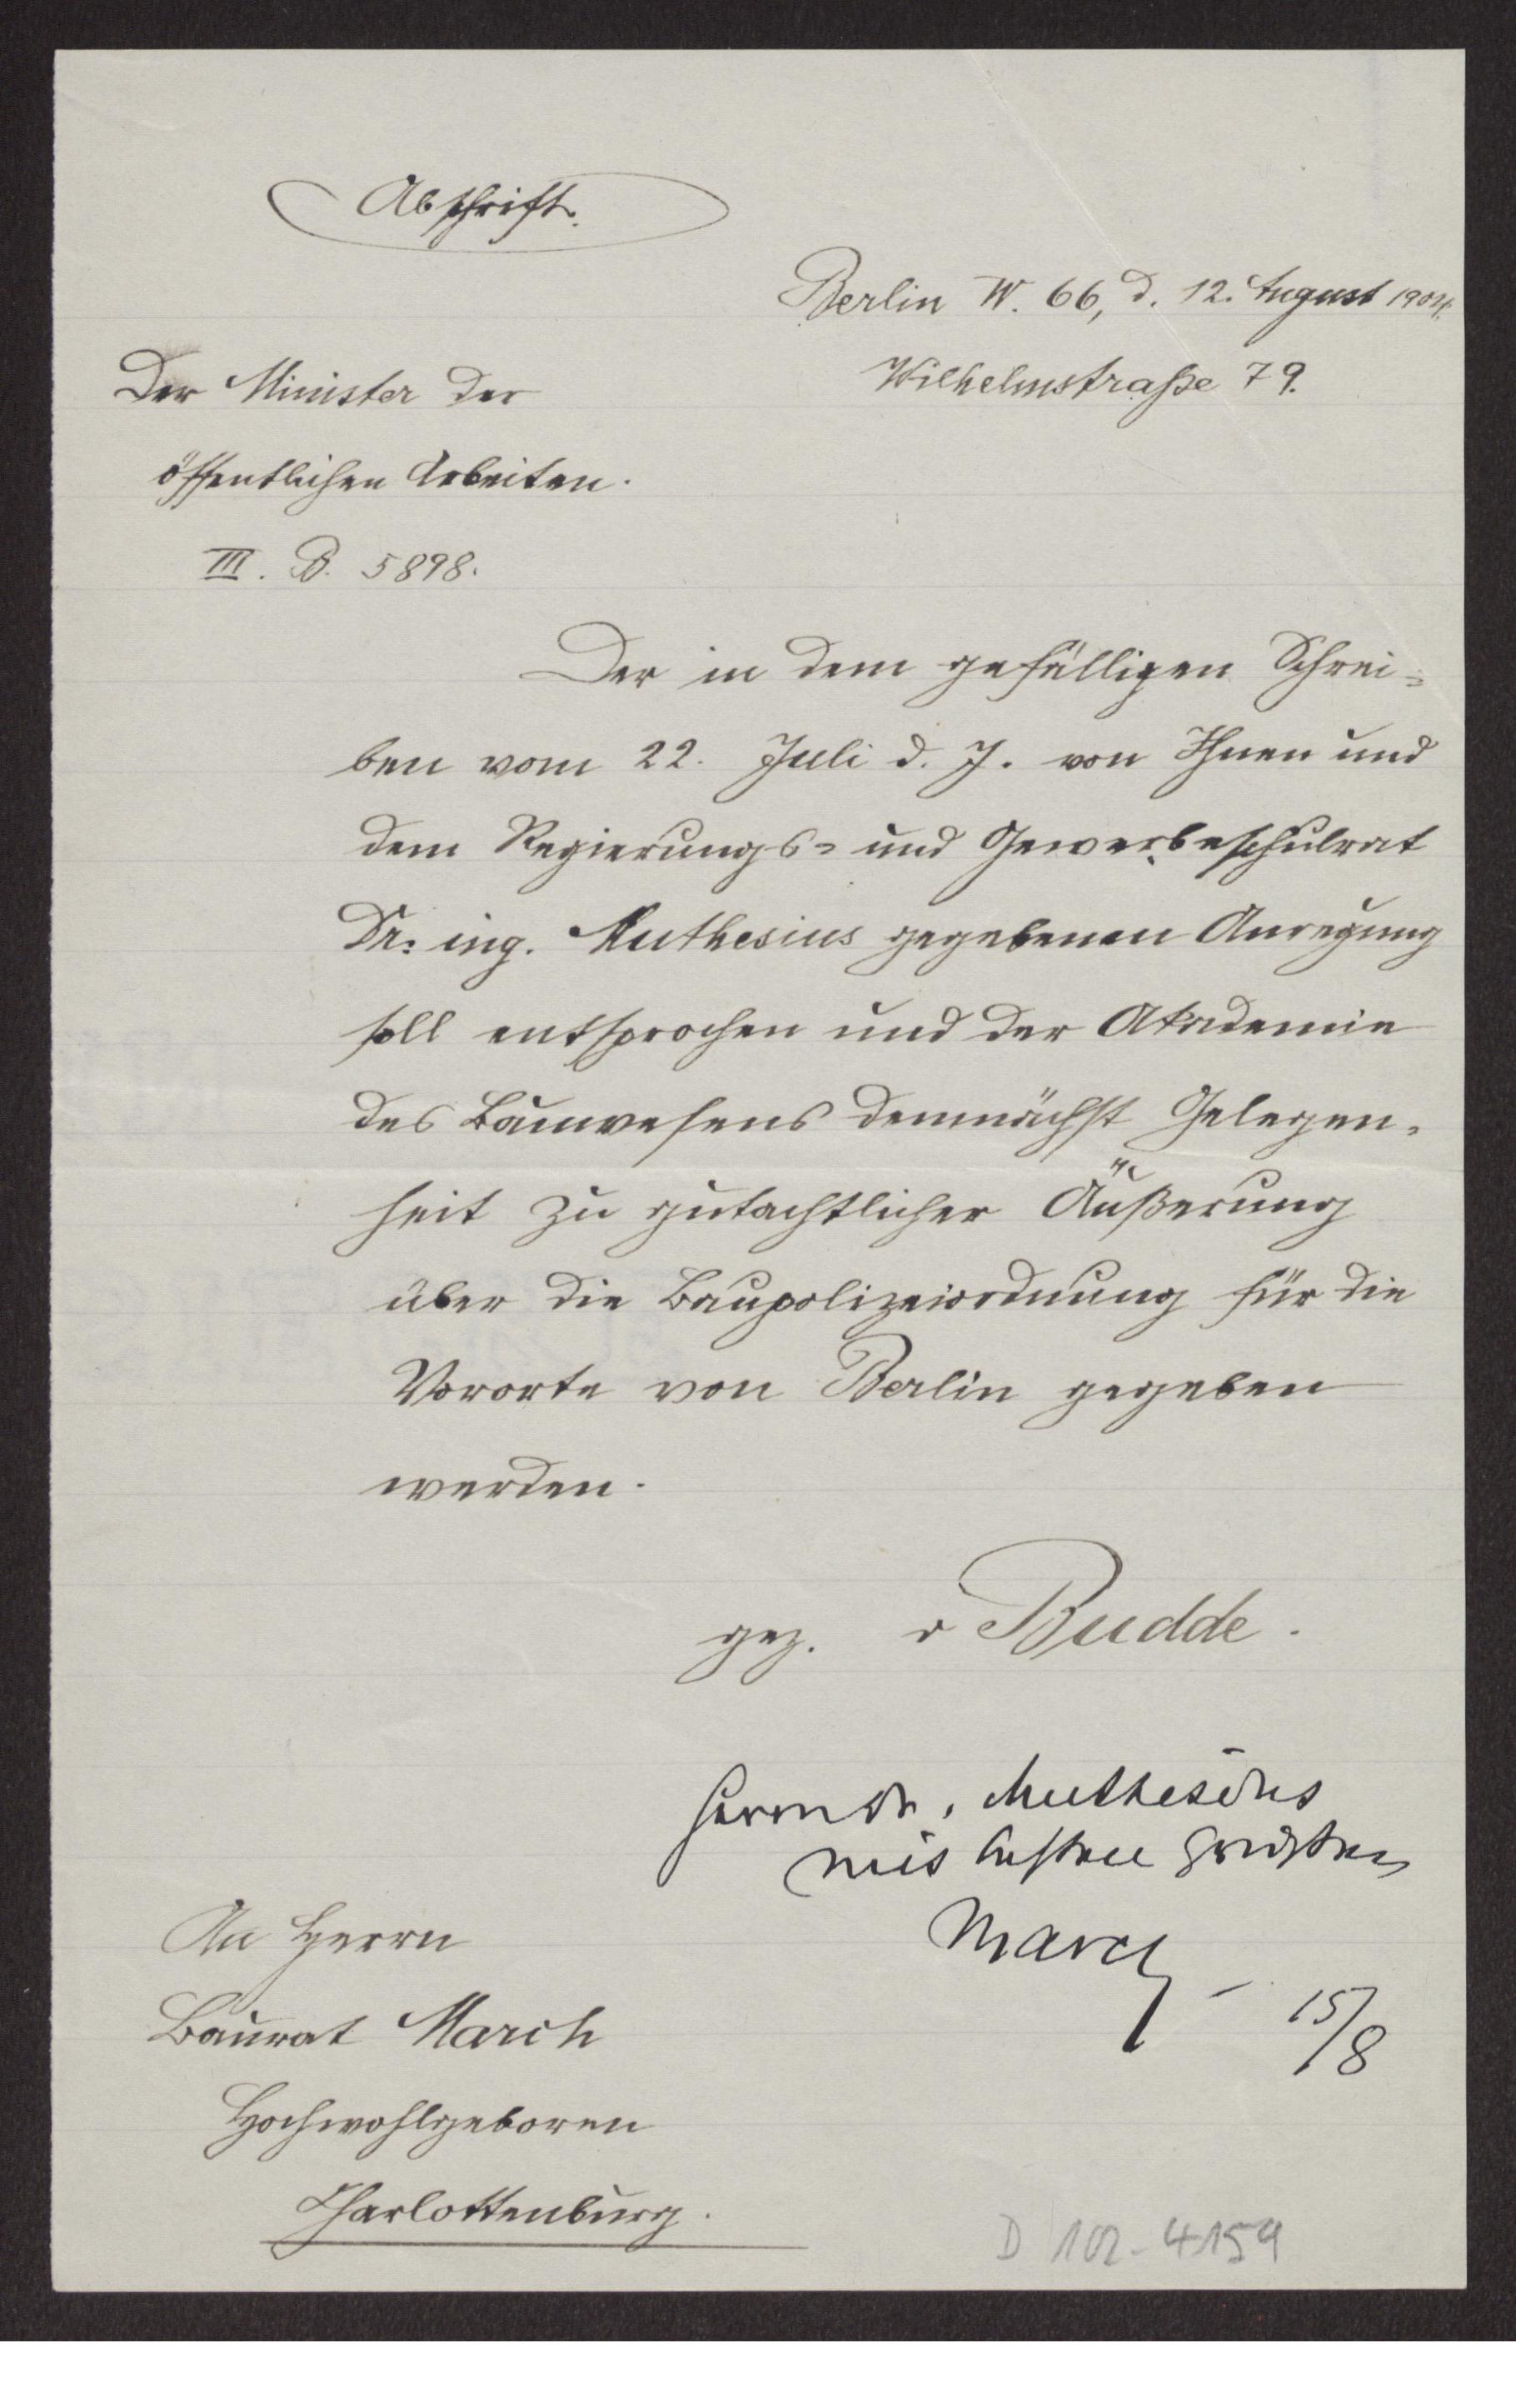 Abschrift.
Berlin W. 66, d. 12. August 1904.
Wilhelmstraße 79.
Der Minister der
öffentlichen Arbeiten.
III. B. 5898.
Der in dem gefälligen Schrei=
ben vom 22. Juli d. J. von Ihnen und
dem Regierungs= und Gewerbeschulrat
Dr: ing. Muthesius gegebenen Anregung
soll entsprochen und der Akademie
des Bauwesens demnächst Gelegen=
heit zu gutachtlicher Äußerung
über die Baupolizeiordnung für die
Vororte von Berlin gegeben
werden.
gez. v Budde.
Herrn Dr. Muthesius
mit besten Grüßen
March
15/8
An Herrn
Baurat March
Hochwohlgeboren
Charlottenburg.
D 102-4159